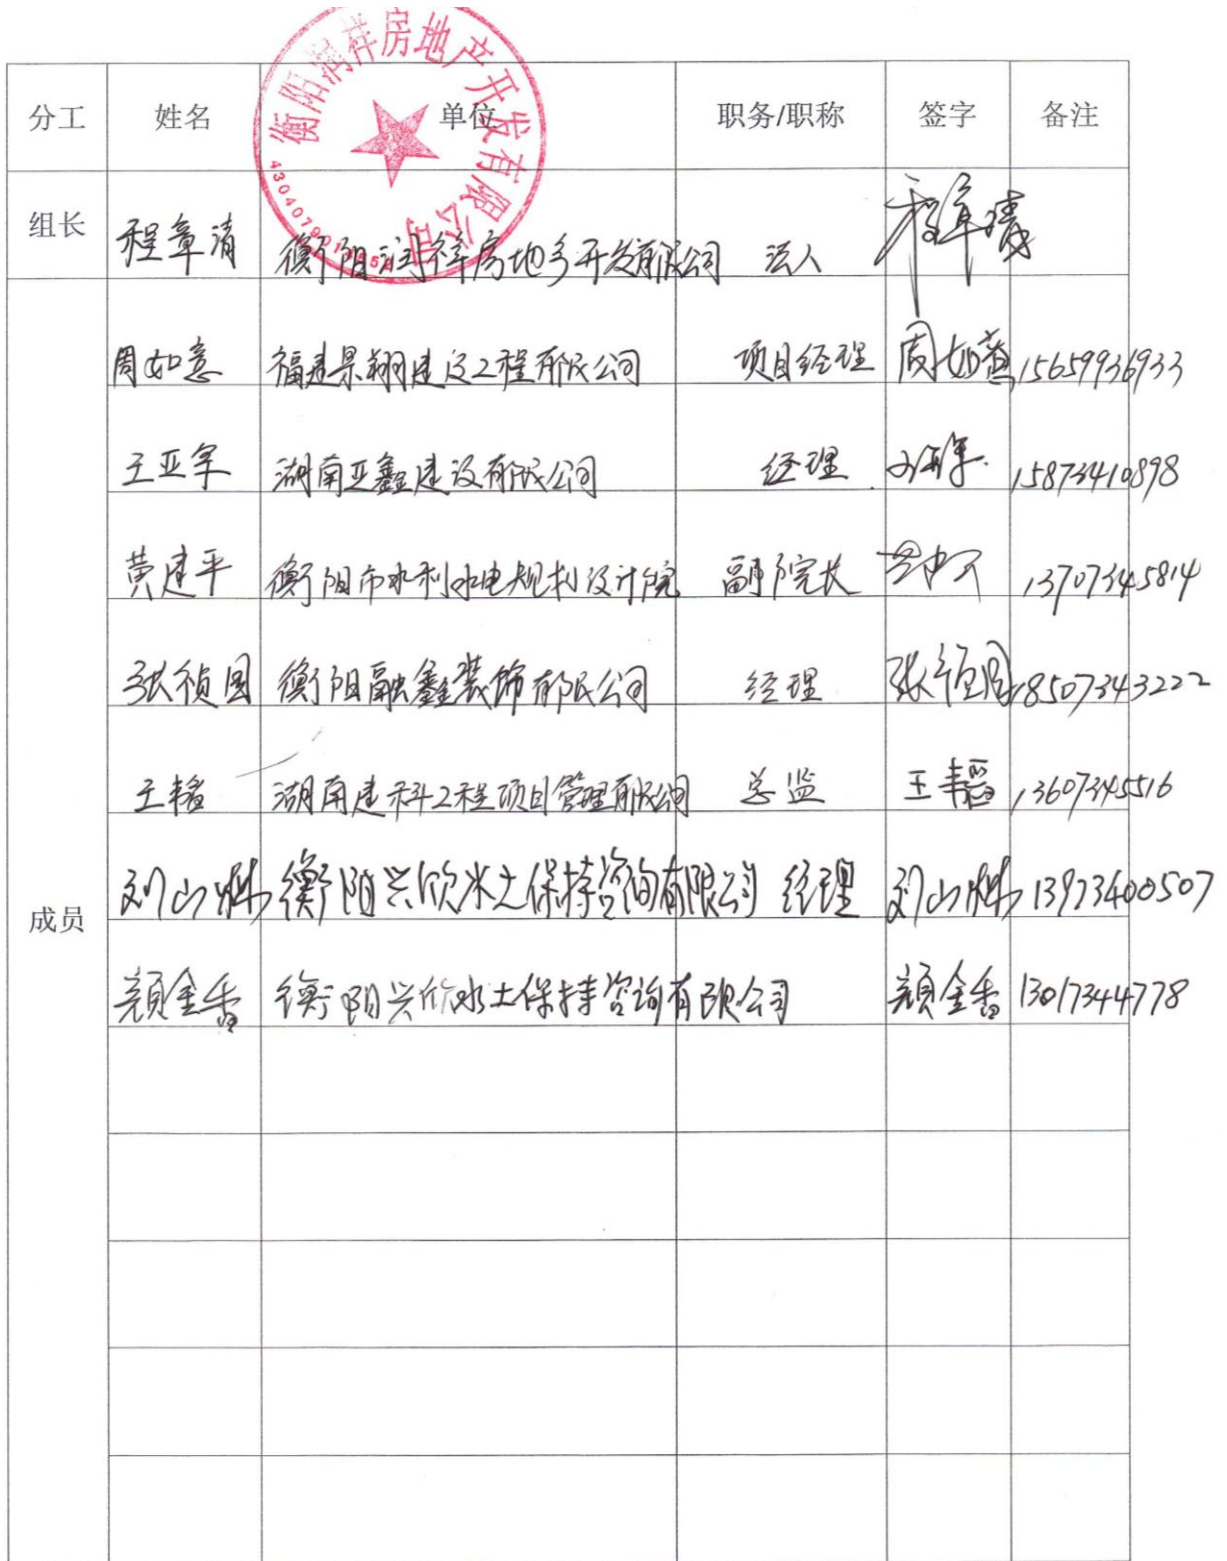 衡阳润祥房地产开发有限公司
分工 姓名 单位 职务/职称 签字 备注
组长 程章清 衡阳润祥房地产开发有限公司 法人 程章清
周如意 福建景翔建设工程有限公司 项目经理 周如意 15659936933
王亚军 湖南亚鑫建设有限公司 经理 15873410898
黄建平 衡阳市水利水电规划设计院 副院长 13707345814
张祯国 衡阳融鑫装饰有限公司 经理 张祯国 18507343222
王韬 湖南建科工程项目管理有限公司 总监 王韬 13607345516
成员 刘山 衡阳兴欣水土保持咨询有限公司 经理 刘山 13973400507
颜金香 衡阳兴欣水土保持咨询有限公司 颜金香 13017344778